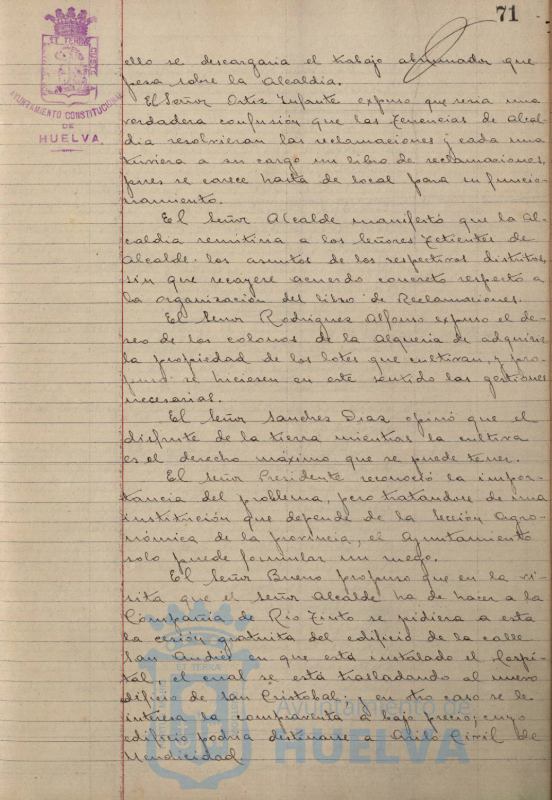 71
AYUNTAMIENTO CONSTITUCIONAL
DE
HUELVA
ello se descargaria el trabajo abrumador que
pesa sobre la Alcaldia.
El Señor Ortiz Infante expuso que seria una
verdadera confusión que las Tenencias de Alcal-
dia resolvieran las reclamaciones y cada una
tuviera a su cargo un libro de reclamaciones,
pues se carece hasta de local para su funcio-
namiento.
El Señor Alcalde manifestó que la Al-
caldia remitiria a los Señores Tenientes de
Alcalde los asuntos de los respectivos distritos,
sin que recayere acuerdo concreto respecto a
la organización del libro de Reclamaciones.
El Señor Rodriguez Alfonso expuso el de-
seo de los colonos de la Alqueria de adquirir
la propiedad de los lotes que cultivan, y pro-
puso se hiciesen en este sentido las gestiones
necesarias.
El Señor Sanchez Diaz opinó que el
disfrute de la tierra mientras la cultiva
es el derecho máximo que se puede tener.
El Señor Presidente reconoció la impor-
tancia del problema, pero tratándose de una
institución que depende de la Sección Agro-
nómica de la provincia, el Ayuntamiento
solo puede formular un ruego.
El Señor Bueno propuso que en la vi-
sita que el Señor Alcalde ha de hacer a la
Compañia de Rio Tinto se pidiera a esta
la cesión gratuita del edificio de la calle
San Andrés en que está instalado el Hospi-
tal, el cual se está trasladando al nuevo
edificio de San Cristobal; y en otro caso se le
interesa la compraventa a bajo precio; cuyo
edificio podria destinarse a Asilo Civil de
Mendicidad.
Ayuntamiento de
HUELVA